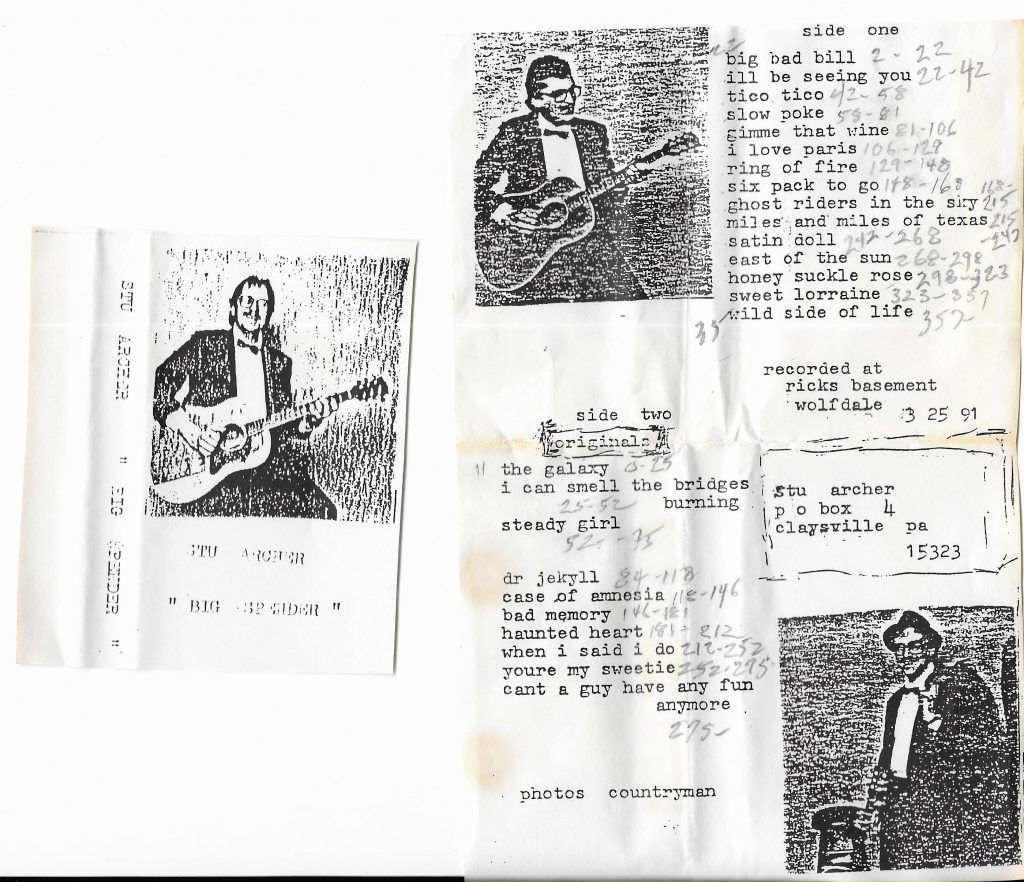 STU ARCHER " BIG SPENDER "
STU ARCHER
" BIG SPENDER "
side one
big bad bill 2 - 22
ill be seeing you 22-42
tico tico 42-58
slow poke 58-81
gimme that wine 81-106
i love paris 106-129
ring of fire 129-148
six pack to go 148-168 168-
ghost riders in the sky 215
miles and miles of texas 215
satin doll 242-268 -242
east of the sun 268-298
honey suckle rose 298-323
sweet lorraine 323-357
wild side of life 357
33
recorded at
ricks basement
wolfdale 3 25 91
side two
originals
the galaxy 0-25
i can smell the bridges
25-52 burning
steady girl
52-75
dr jekyll 84-118
case of amnesia 118-146
bad memory 146-181
haunted heart 181-212
when i said i do 212-252
youre my sweetie 252-275
cant a guy have any fun
anymore
275-
photos countryman
stu archer
p o box 4
claysville pa
15323